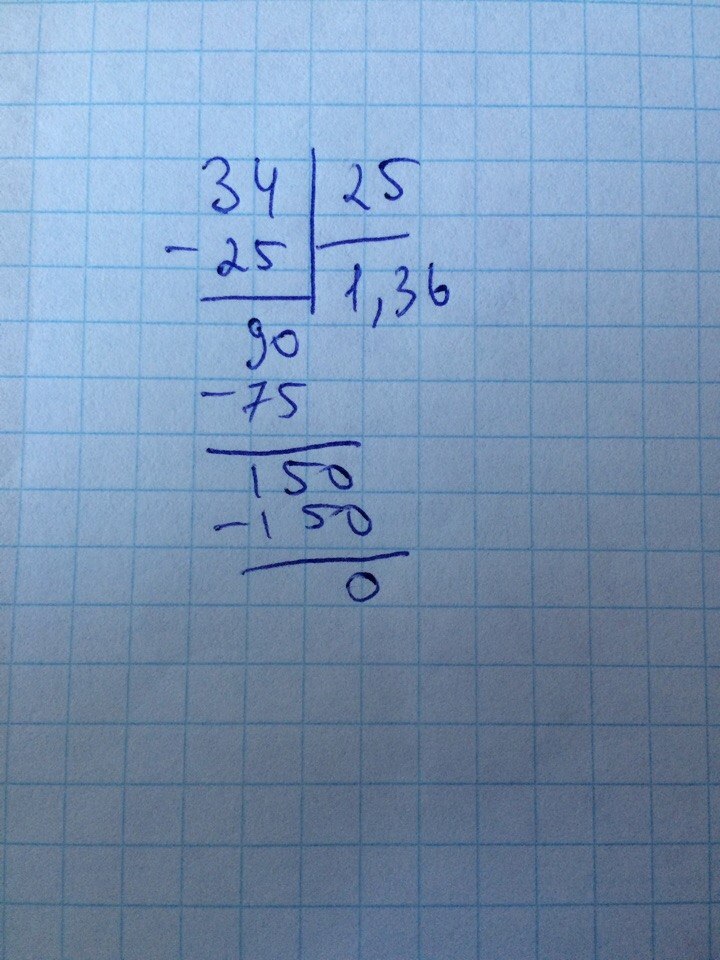 34 25
-25 1,36
90
-75
150
-150
0